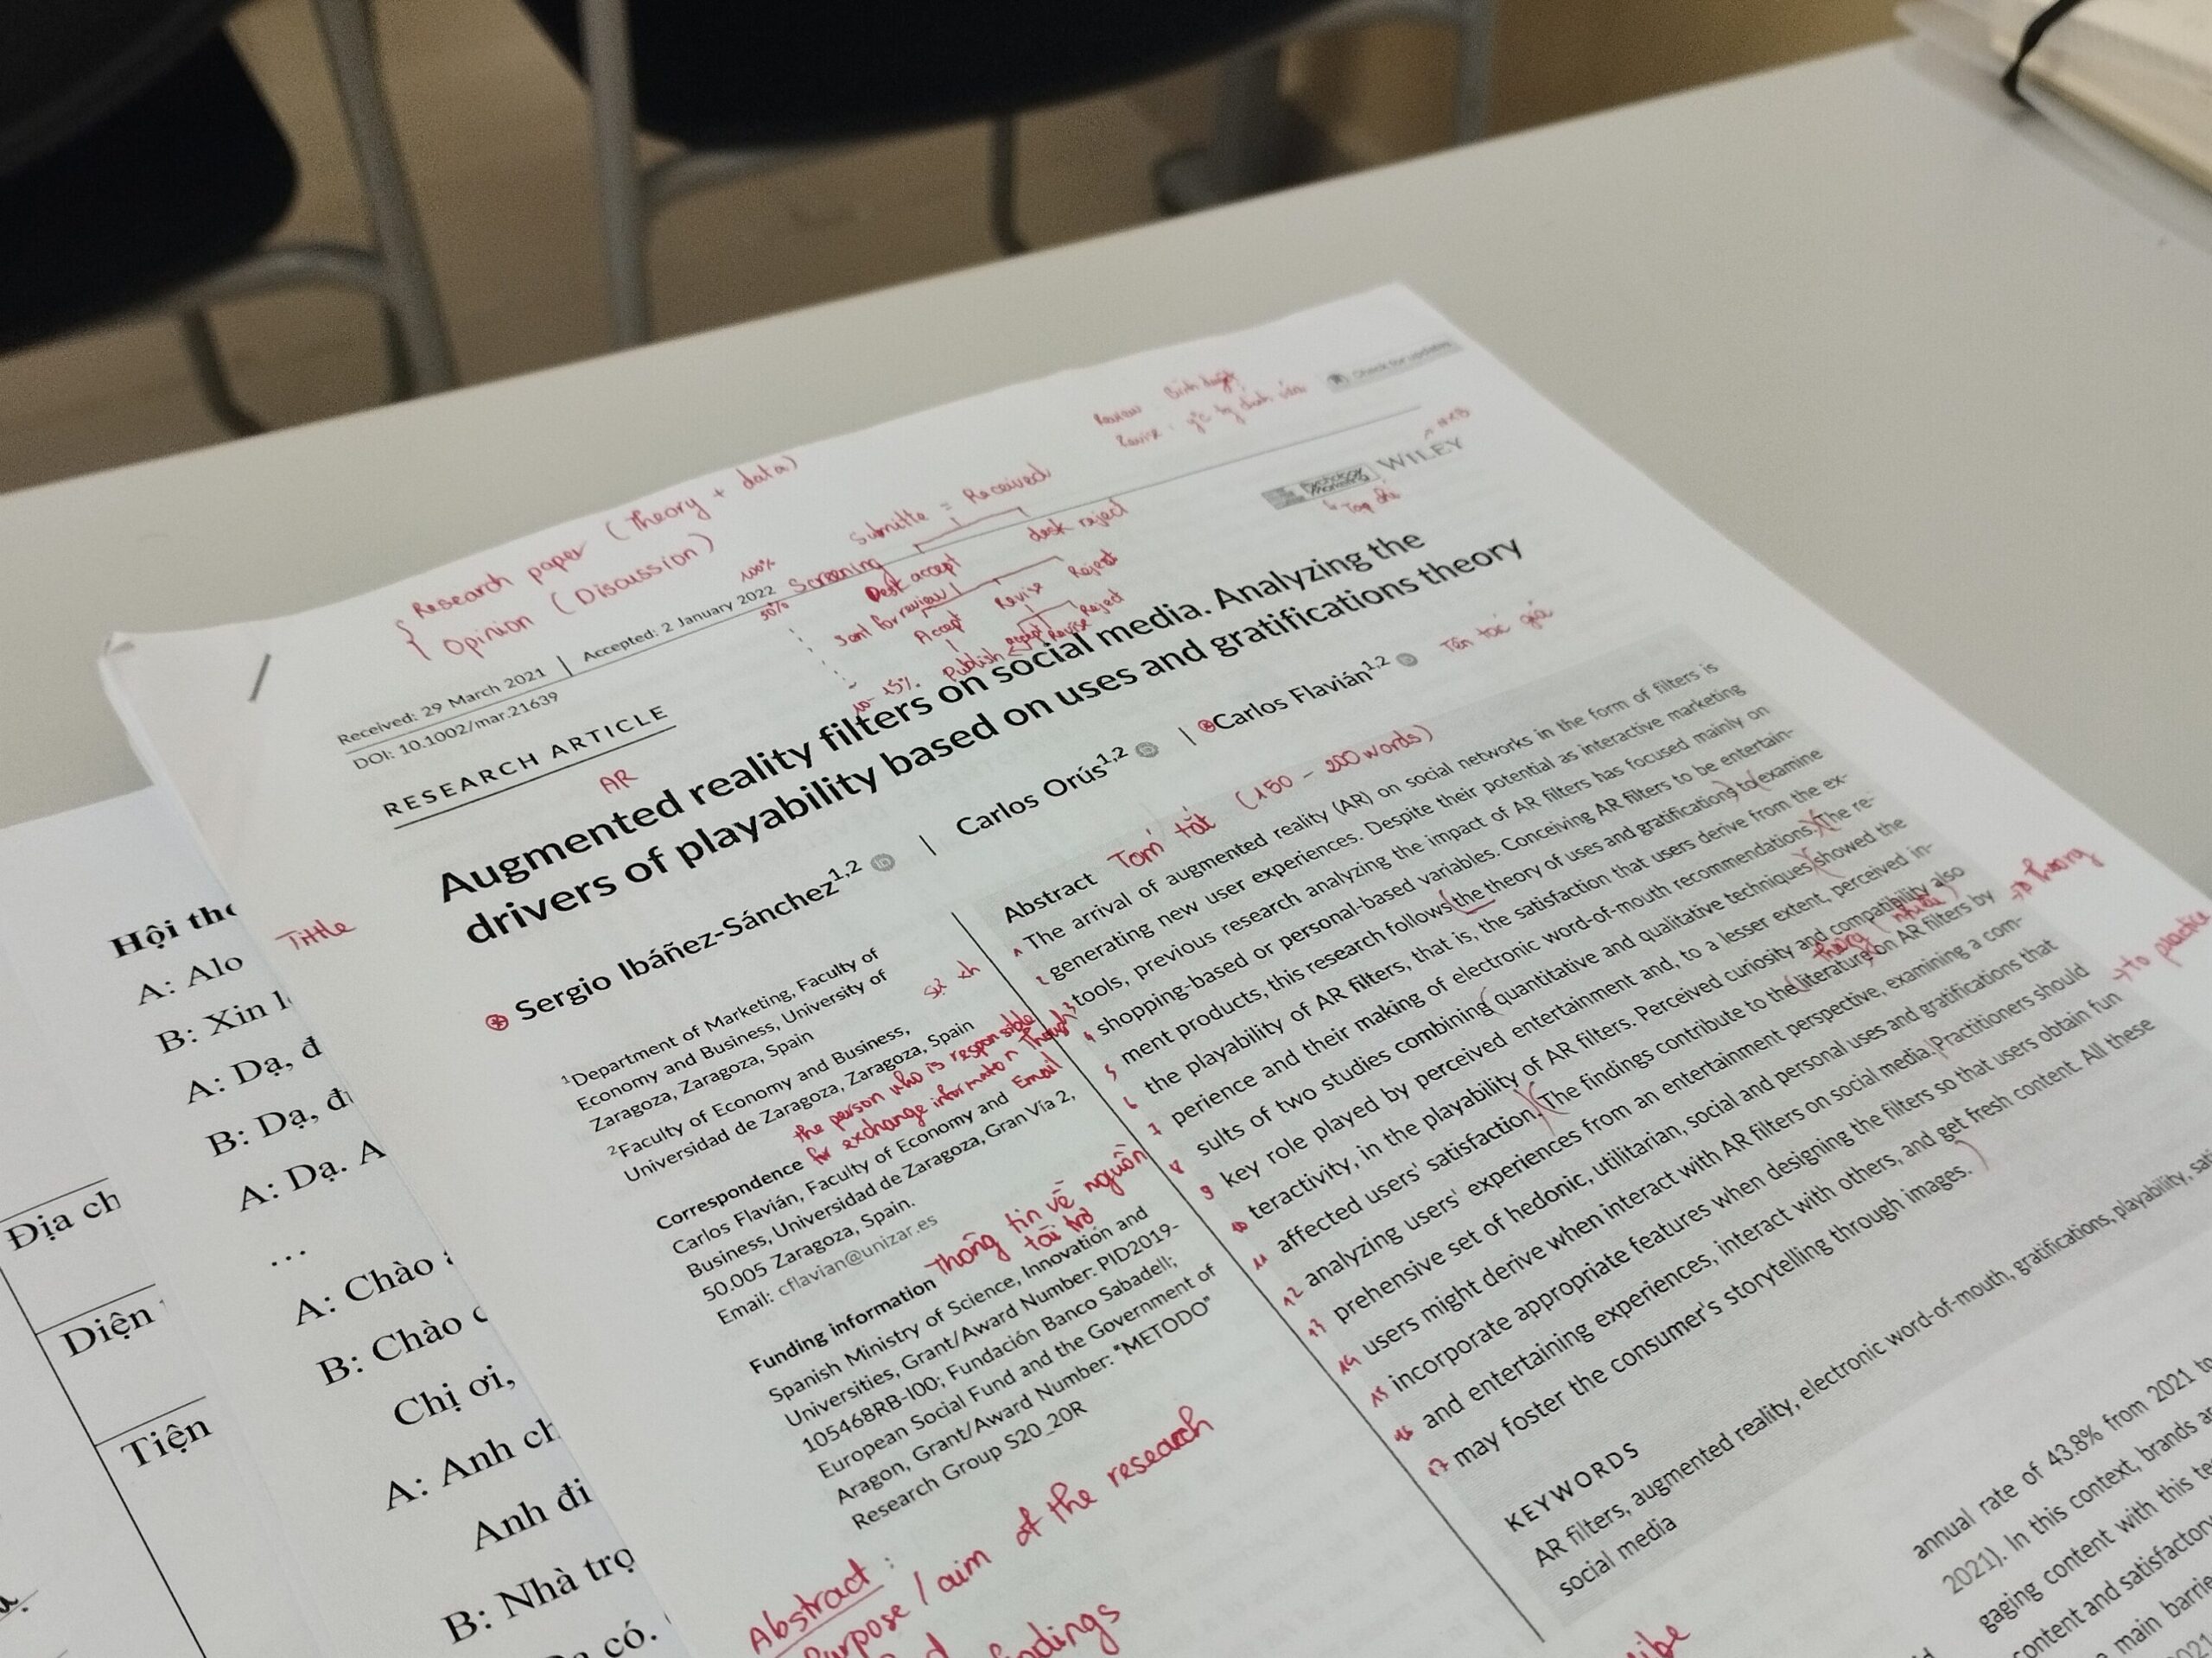 Research paper (Theory + data)
Opinion (Discussion)
Submitte = Received
desk reject
100%
50%
Screening
Desk accept
Sent for review
Reject
Revise
Accept
Reject
accept
Revise
Publish
10 - 15%
Review
Check for updates
WILEY
Psychology
Marketing
Tạp chí
Received: 29 March 2021 | Accepted: 2 January 2022
DOI: 10.1002/mar.21639
RESEARCH ARTICLE
AR
Tittle
Augmented reality filters on social media. Analyzing the
drivers of playability based on uses and gratifications theory
Sergio Ibáñez-Sánchez1,2 | Carlos Orús1,2 | Carlos Flavián1,2
Tên tác giả
1Department of Marketing, Faculty of
Economy and Business, University of
Zaragoza, Zaragoza, Spain
2Faculty of Economy and Business,
Universidad de Zaragoza, Zaragoza, Spain
the person who is responsible
for exchange informaton though Email
Correspondence
Carlos Flavián, Faculty of Economy and
Business, Universidad de Zaragoza, Gran Vía 2,
50.005 Zaragoza, Spain.
Email: cflavian@unizar.es
Thông tin về nguồn
tài trợ
Funding information
Spanish Ministry of Science, Innovation and
Universities, Grant/Award Number: PID2019-
105468RB-I00; Fundación Banco Sabadell;
European Social Fund and the Government of
Aragon, Grant/Award Number: "METODO"
Research Group S20_20R
Abstract :
Purpose / aim of the research
Abstract Tóm tắt (150 - 200 words)
1 The arrival of augmented reality (AR) on social networks in the form of filters is
2 generating new user experiences. Despite their potential as interactive marketing
3 tools, previous research analyzing the impact of AR filters has focused mainly on
4 shopping-based or personal-based variables. Conceiving AR filters to be entertain-
5 ment products, this research follows the theory of uses and gratifications to examine
6 the playability of AR filters, that is, the satisfaction that users derive from the ex-
7 perience and their making of electronic word-of-mouth recommendations. The re-
8 sults of two studies combining quantitative and qualitative techniques showed the
9 key role played by perceived entertainment and, to a lesser extent, perceived in-
10 teractivity, in the playability of AR filters. Perceived curiosity and compatibility also
11 affected users' satisfaction. The findings contribute to the literature on AR filters by
12 analyzing users' experiences from an entertainment perspective, examining a com-
13 prehensive set of hedonic, utilitarian, social and personal uses and gratifications that
14 users might derive when interact with AR filters on social media. Practitioners should
15 incorporate appropriate features when designing the filters so that users obtain fun
16 and entertaining experiences, interact with others, and get fresh content. All these
17 may foster the consumer's storytelling through images.
to theory
to practice
KEYWORDS
AR filters, augmented reality, electronic word-of-mouth, gratifications, playability,
social media
annual rate of 43.8% from 2021 to
2021). In this context, brands
gaging content with this
content and satisfactory
main
Hội
A: Alo
B: Xin
A: Dạ,
B: Dạ,
A: Dạ. A
...
A: Chào
B: Chào
Chị ơi,
A: Anh
Anh đi
B: Nhà trọ
có.
Địa
Diện
Tiện